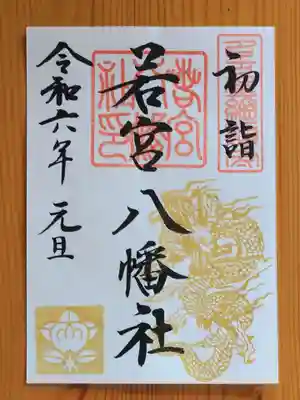 初詣
若宮八幡社
令和六年 元旦